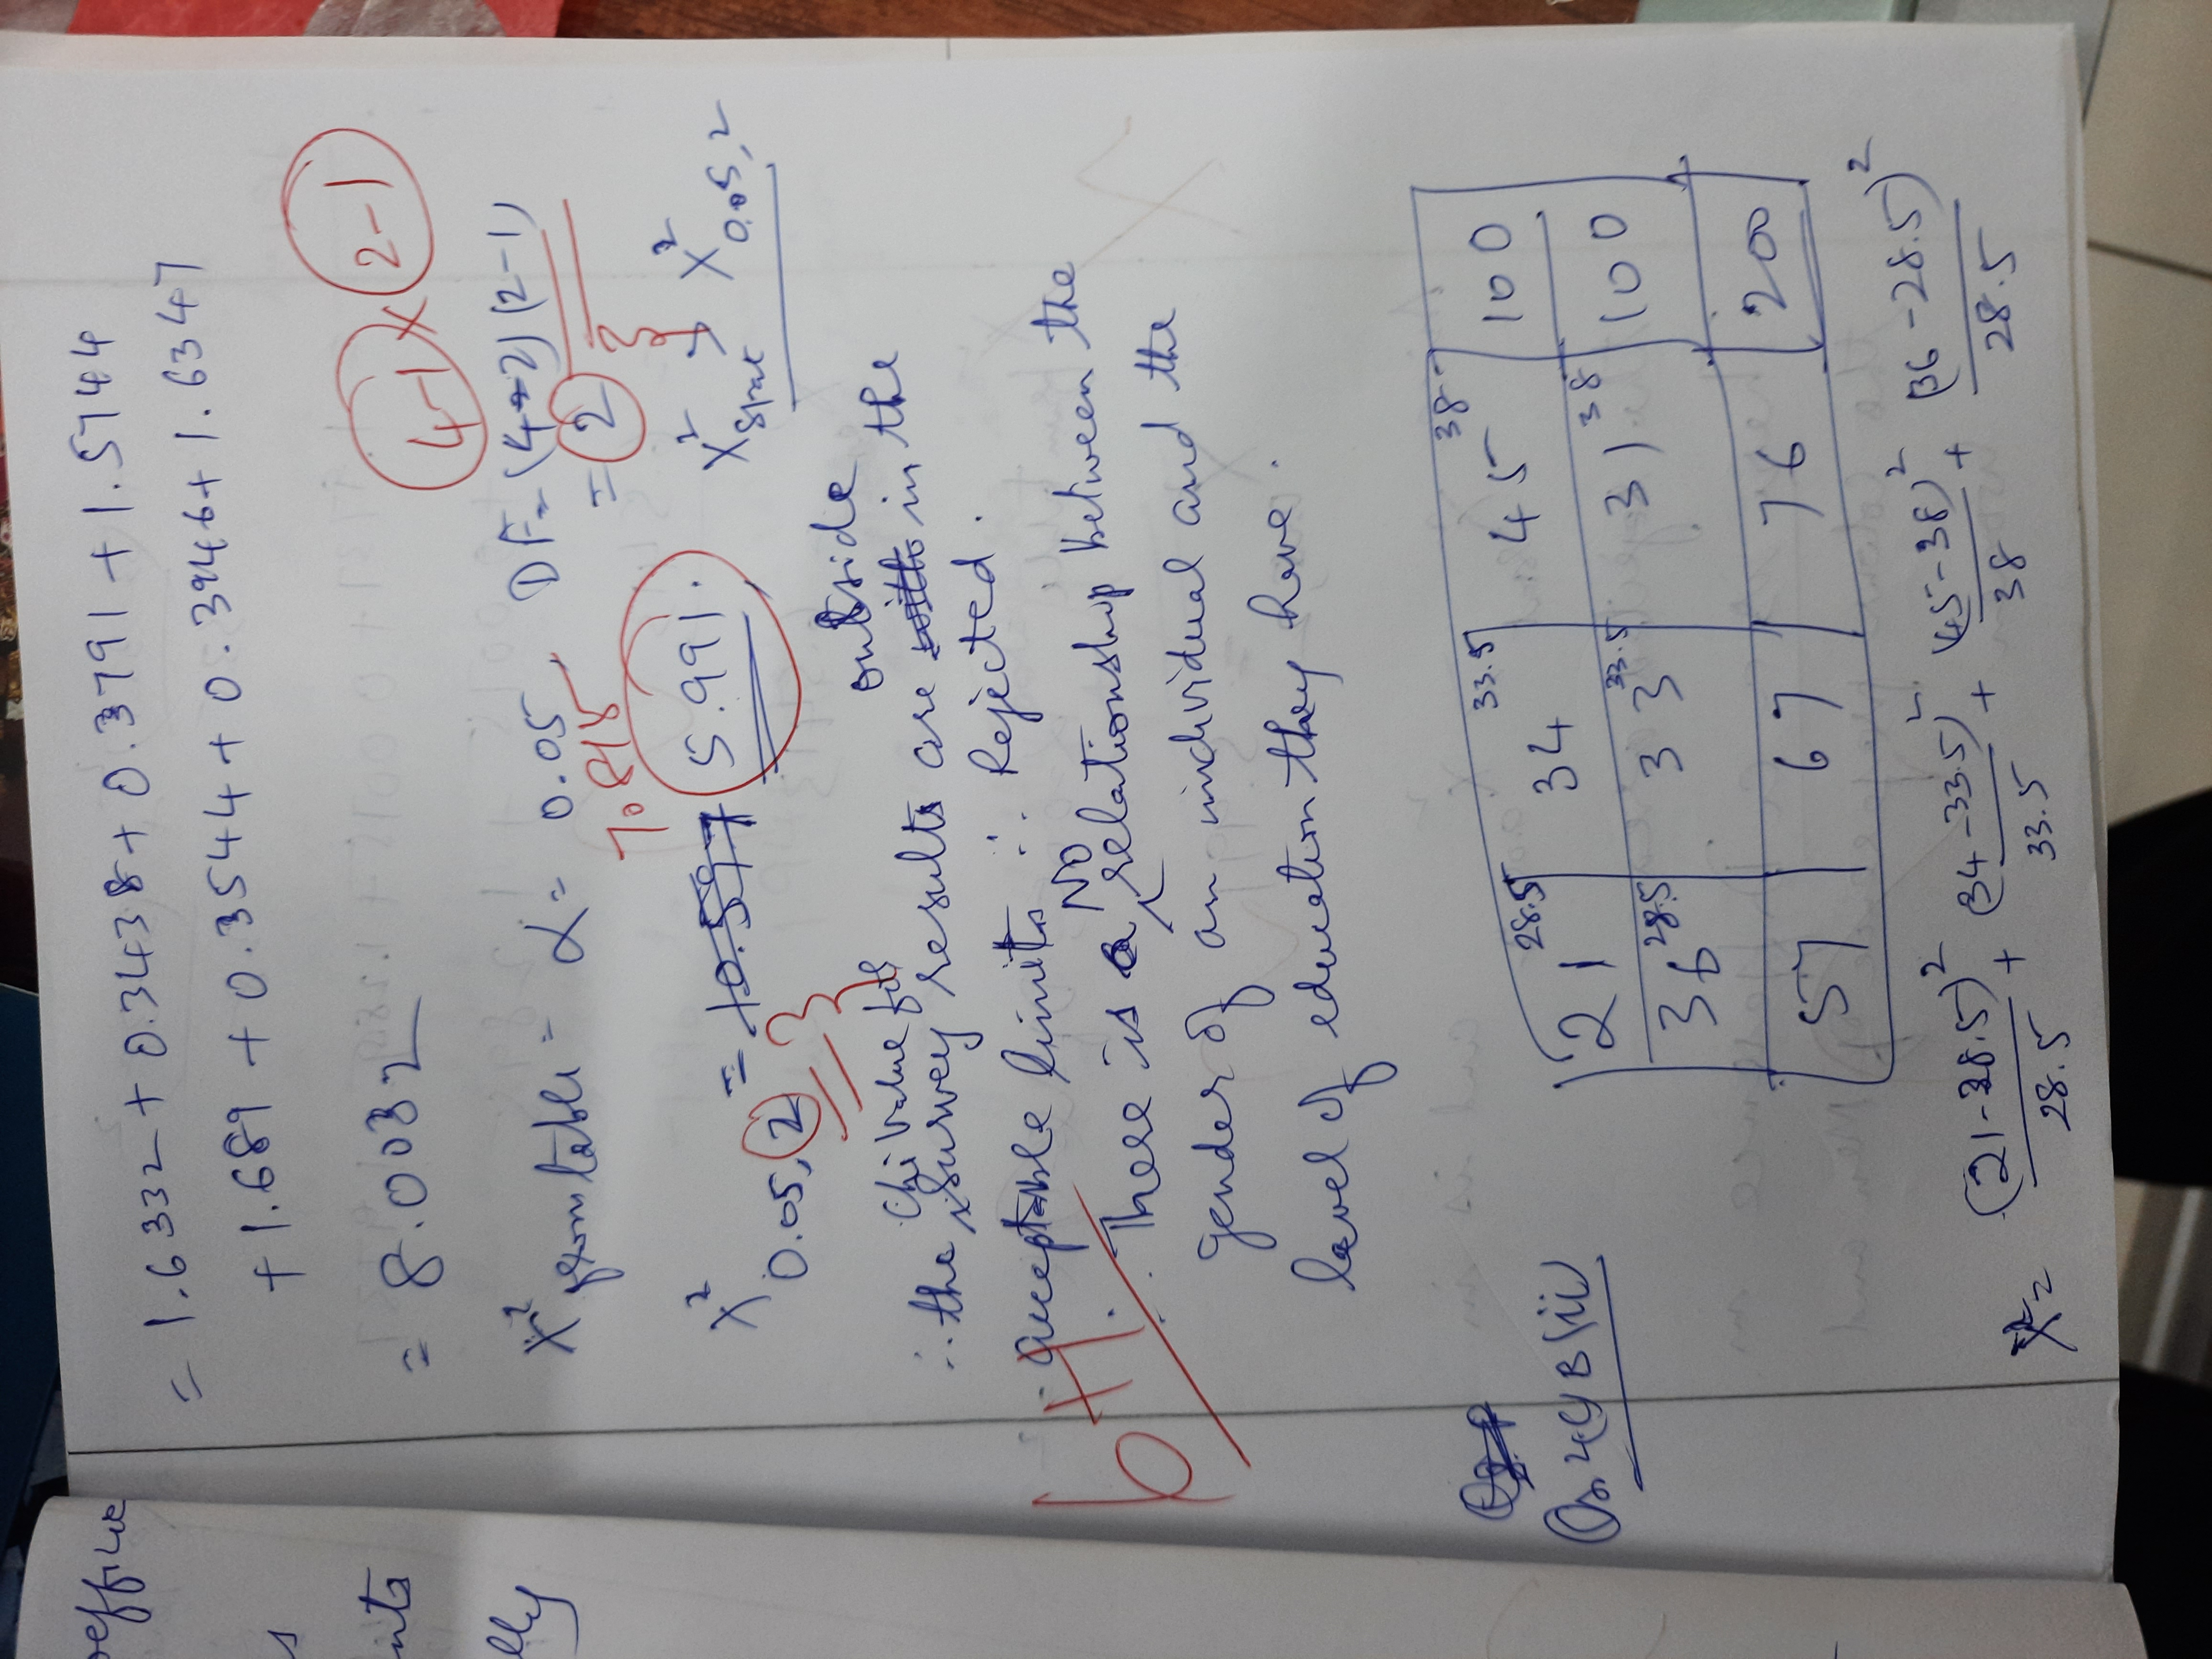 oeffice
s
nts
lly
= 1.6332 + 0.3438 + 0.3791 + 1.5744
+ 1.689 + 0.3544 + 0.3946 + 1.6347
= 8.0032
4-1 × 2-1
X² from table = α = 0.05, DF = (4-2)(2-1)
= 2 3
7.815
X² 0.05, 2 = 10.597 5.991. X² stat > X² 0.05, 2
3
outside
chi value for
∴ the survey results are with in the
acceptable limits ∴ Rejected.
6+1.
NO
∴ There is a relationship between the
gender of an individual and the
level of education they have.
Qs 4(B(ii)
21 28.5 34 33.5 45 38 100
36 28.5 33 33.5 31 38 100
57 67 76 200
X² = (21-28.5)²/28.5 + (34-33.5)²/33.5 + (45-38)²/38 + (36-28.5)²/28.5